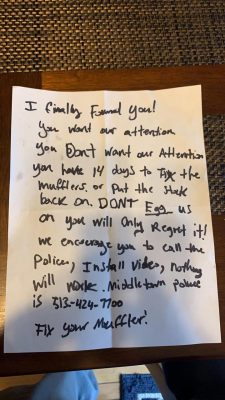 I finally Found You!
You want our attention
you Don't want our Attention
you have 14 days to Fix the
Mufflers. or Put the stock
back on. DONT Egg us
on you will Only Regret it!
We encourage you to call the
Police, Install Video, nothing
Will work. Middletown police
is 513-424-7700
Fix Your Muffler!